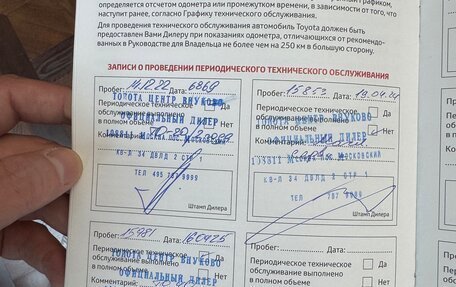 определяется отсчетом одометра или промежутком времени, в зависимости от того, что
наступит ранее, согласно Графику технического обслуживания.
Для проведения технического обслуживания автомобиль Toyota должен быть
предоставлен Вами Дилеру при показаниях одометра, отличающихся от рекомендо-
ванных в Руководстве для Владельца не более чем на 250 км в большую сторону.
ЗАПИСИ О ПРОВЕДЕНИИ ПЕРИОДИЧЕСКОГО ТЕХНИЧЕСКОГО ОБСЛУЖИВАНИЯ
Пробег: 14.12.22 Дата: 6869
ТОЙОТА ЦЕНТР ВНУКОВО
Периодическое техническое Да
обслуживание выполнено
в полном объеме Нет
ОФИЦИАЛЬНЫЙ ДИЛЕР
Комментарий:
КВ-Л 34 ДВЛД 2 СТР 1
ТЕЛ 495 787 9999
Штамп Дилера
Пробег: 15853 Дата: 19.04.24
ТОЙОТА ЦЕНТР ВНУКОВО
Периодическое техническое Да
обслуживание выполнено
в полном объеме Нет
ОФИЦИАЛЬНЫЙ ДИЛЕР
Комментарий:
МОСКОВСКИЙ
КВ-Л 34 ДВЛД 2 СТР 1
ТЕЛ 787 9999
Штамп Дилера
Пробег: 15981 Дата: 160425
Периодическое техническое Да
ТОЙОТА ЦЕНТР ВНУКОВО
обслуживание выполнено
в полном объеме Нет
ОФИЦИАЛЬНЫЙ ДИЛЕР
Комментарий:
Пробег: Дата:
Периодическое техническое Да
обслуживание выполнено
в полном объеме Нет
Комментарий: